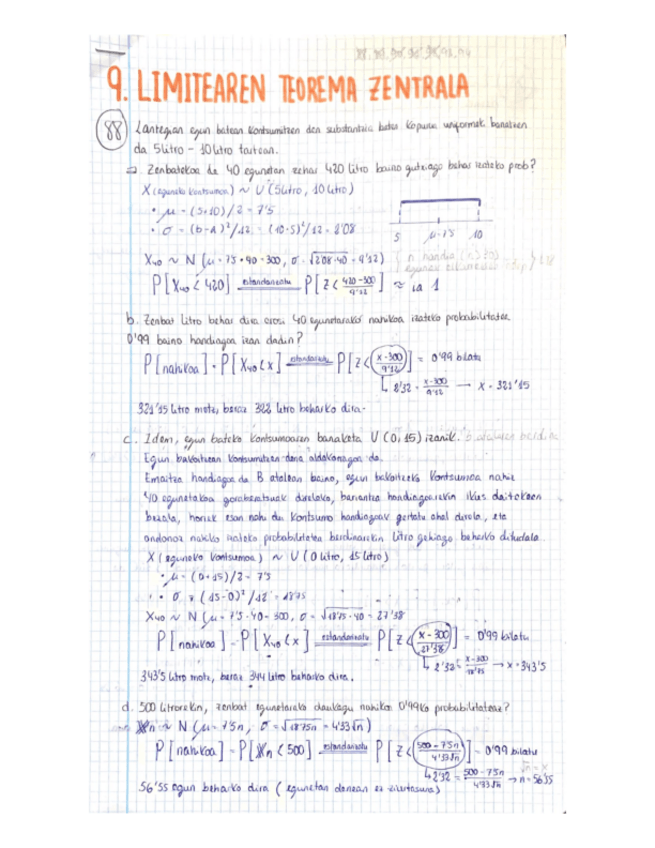 9. LIMITEAREN TEOREMA ZENTRALA
88 Lantegian egun batean kontsumitzen den substantzia baten kopurua uniformeki banatzen
da 5litro - 10litro tartean.
a. Zenbatekoa da 40 egunetan zehar 420 litro baino gutxiago behar izateko prob?
X (eguneko kontsumoa) ~ U (5litro, 10litro)
• μ = (5+10)/2 = 7'5
• σ = (b-a)²/12 = (10-5)²/12 = 2'08
5 μ=7'5 10
X40 ~ N (μ = 7'5 · 40 = 300, σ = √2'08·40 = 9'12)
P[X40 < 420] estandarizatu P[Z < 420-300/9'12] ≈ ia 1
b. Zenbat litro behar dira erosi 40 egunetarako nahikoa izateko probabilitatea
0'99 baino handiagoa izan dadin?
P[nahikoa] = P[X40 < x] estandarizatu P[Z < x-300/9'12] = 0'99 bilatu
2'32 = x-300/9'12 → x = 321'15
321'15 litro motz, beraz 322 litro beharko dira.
c. Idem, egun bateko kontsumoaren banaketa U (0,15) izanik. b atalaren berdina
Egun bakoitzean kontsumitzen dena aldakorragoa da.
Emaitza handiagoa da B atalean baino, egun bakoitzeko kontsumoa nahiz
40 egunetakoa goraberatsuak direlako, bariantza handiagoarekin ikus daitekeen
bezala, honek esan nahi du kontsumo handiagoak gertatu ahal direla, eta
ondorioz nahiko izateko probabilitatea berdinarekin litro gehiago beharko ditudala.
X (eguneko kontsumoa) ~ U (0 litro, 15 litro)
• μ = (0+15)/2 = 7'5
• σ = (15-0)²/12 = 18'75
X40 ~ N (μ = 7'5·40 = 300, σ = √18'75·40 = 27'38
P[nahikoa] = P[X40 < x] estandarizatu P[Z < x-300/27'38] = 0'99 bilatu
2'32 = x-300/18'75 → x = 343'5
343'5 litro motz, beraz 344 litro beharko dira.
d. 500 litrorekin, zenbat egunetarako daukagu nahikoa 0'99ko probabilitateaz?
Xn ~ N (μ = 7'5n, σ = √18'75n = 4'33√n)
P[nahikoa] = P[Xn < 500] estandarizatu P[Z < 500-7'5n/4'33√n] = 0'99 bilatu
√n = x
2'32 = 500-7'5n/4'33√n → n = 56'55
56'55 egun beharko dira (egunetan denean ez ziurtasuna)